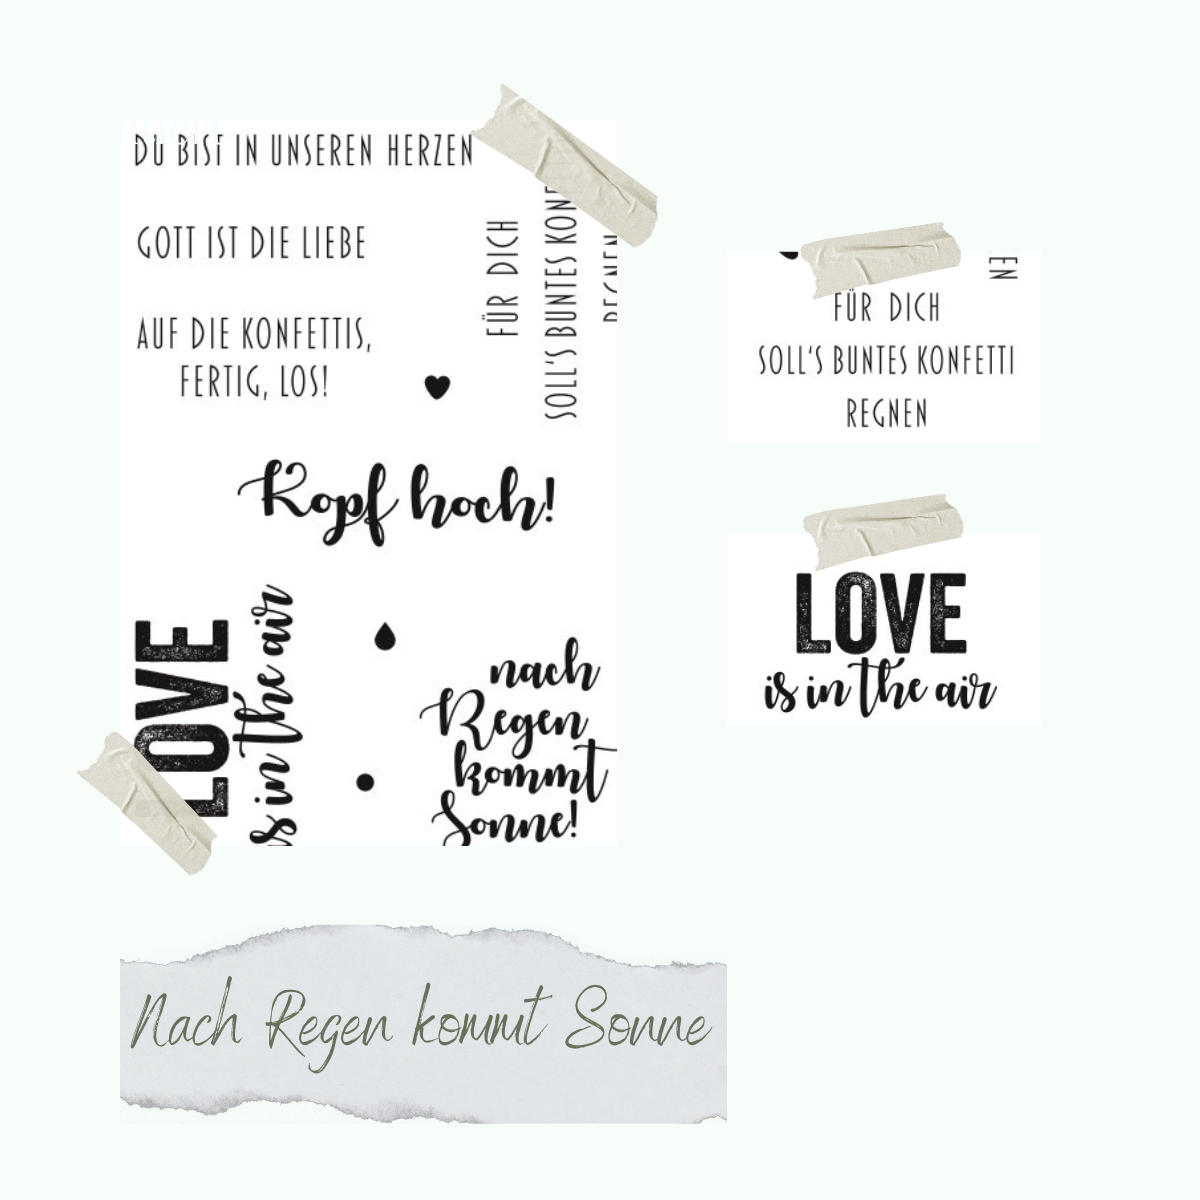 DU BIST IN UNSEREN HERZEN
GOTT IST DIE LIEBE
AUF DIE KONFETTIS,
FERTIG, LOS!
FÜR DICH
SOLL'S BUNTES
REGNEN
Kopf hoch!
LOVE
is in the air
nach
Regen
kommt
Sonne!
EN
FÜR DICH
SOLL'S BUNTES KONFETTI
REGNEN
LOVE
is in the air
Nach Regen kommt Sonne